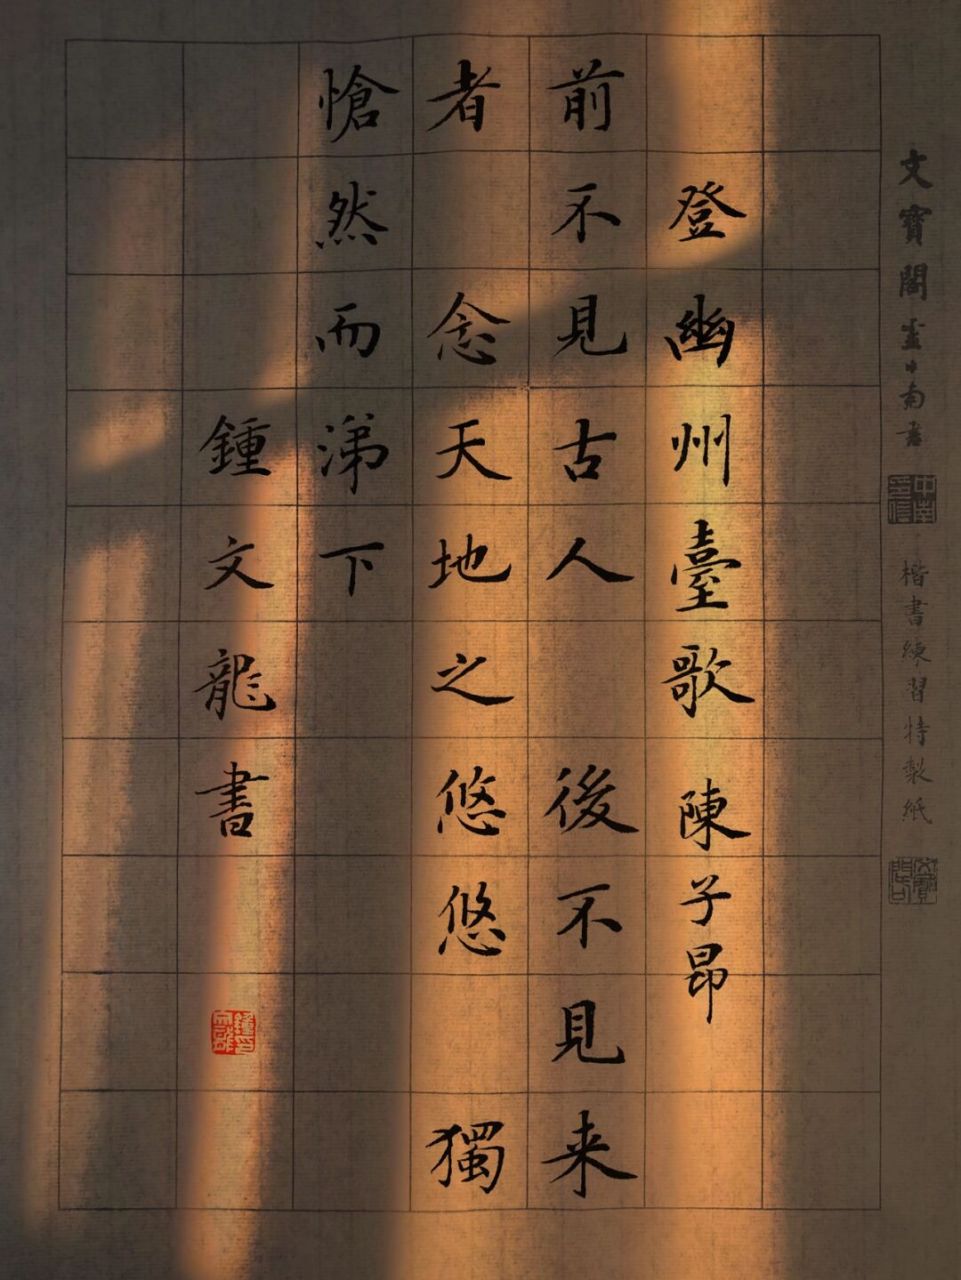 文寶閣
楷書練習特製紙
登幽州臺歌 陳子昂
前不見古人 後不見来
者 念天地之悠悠 獨
愴然而涕下
鍾文龍書